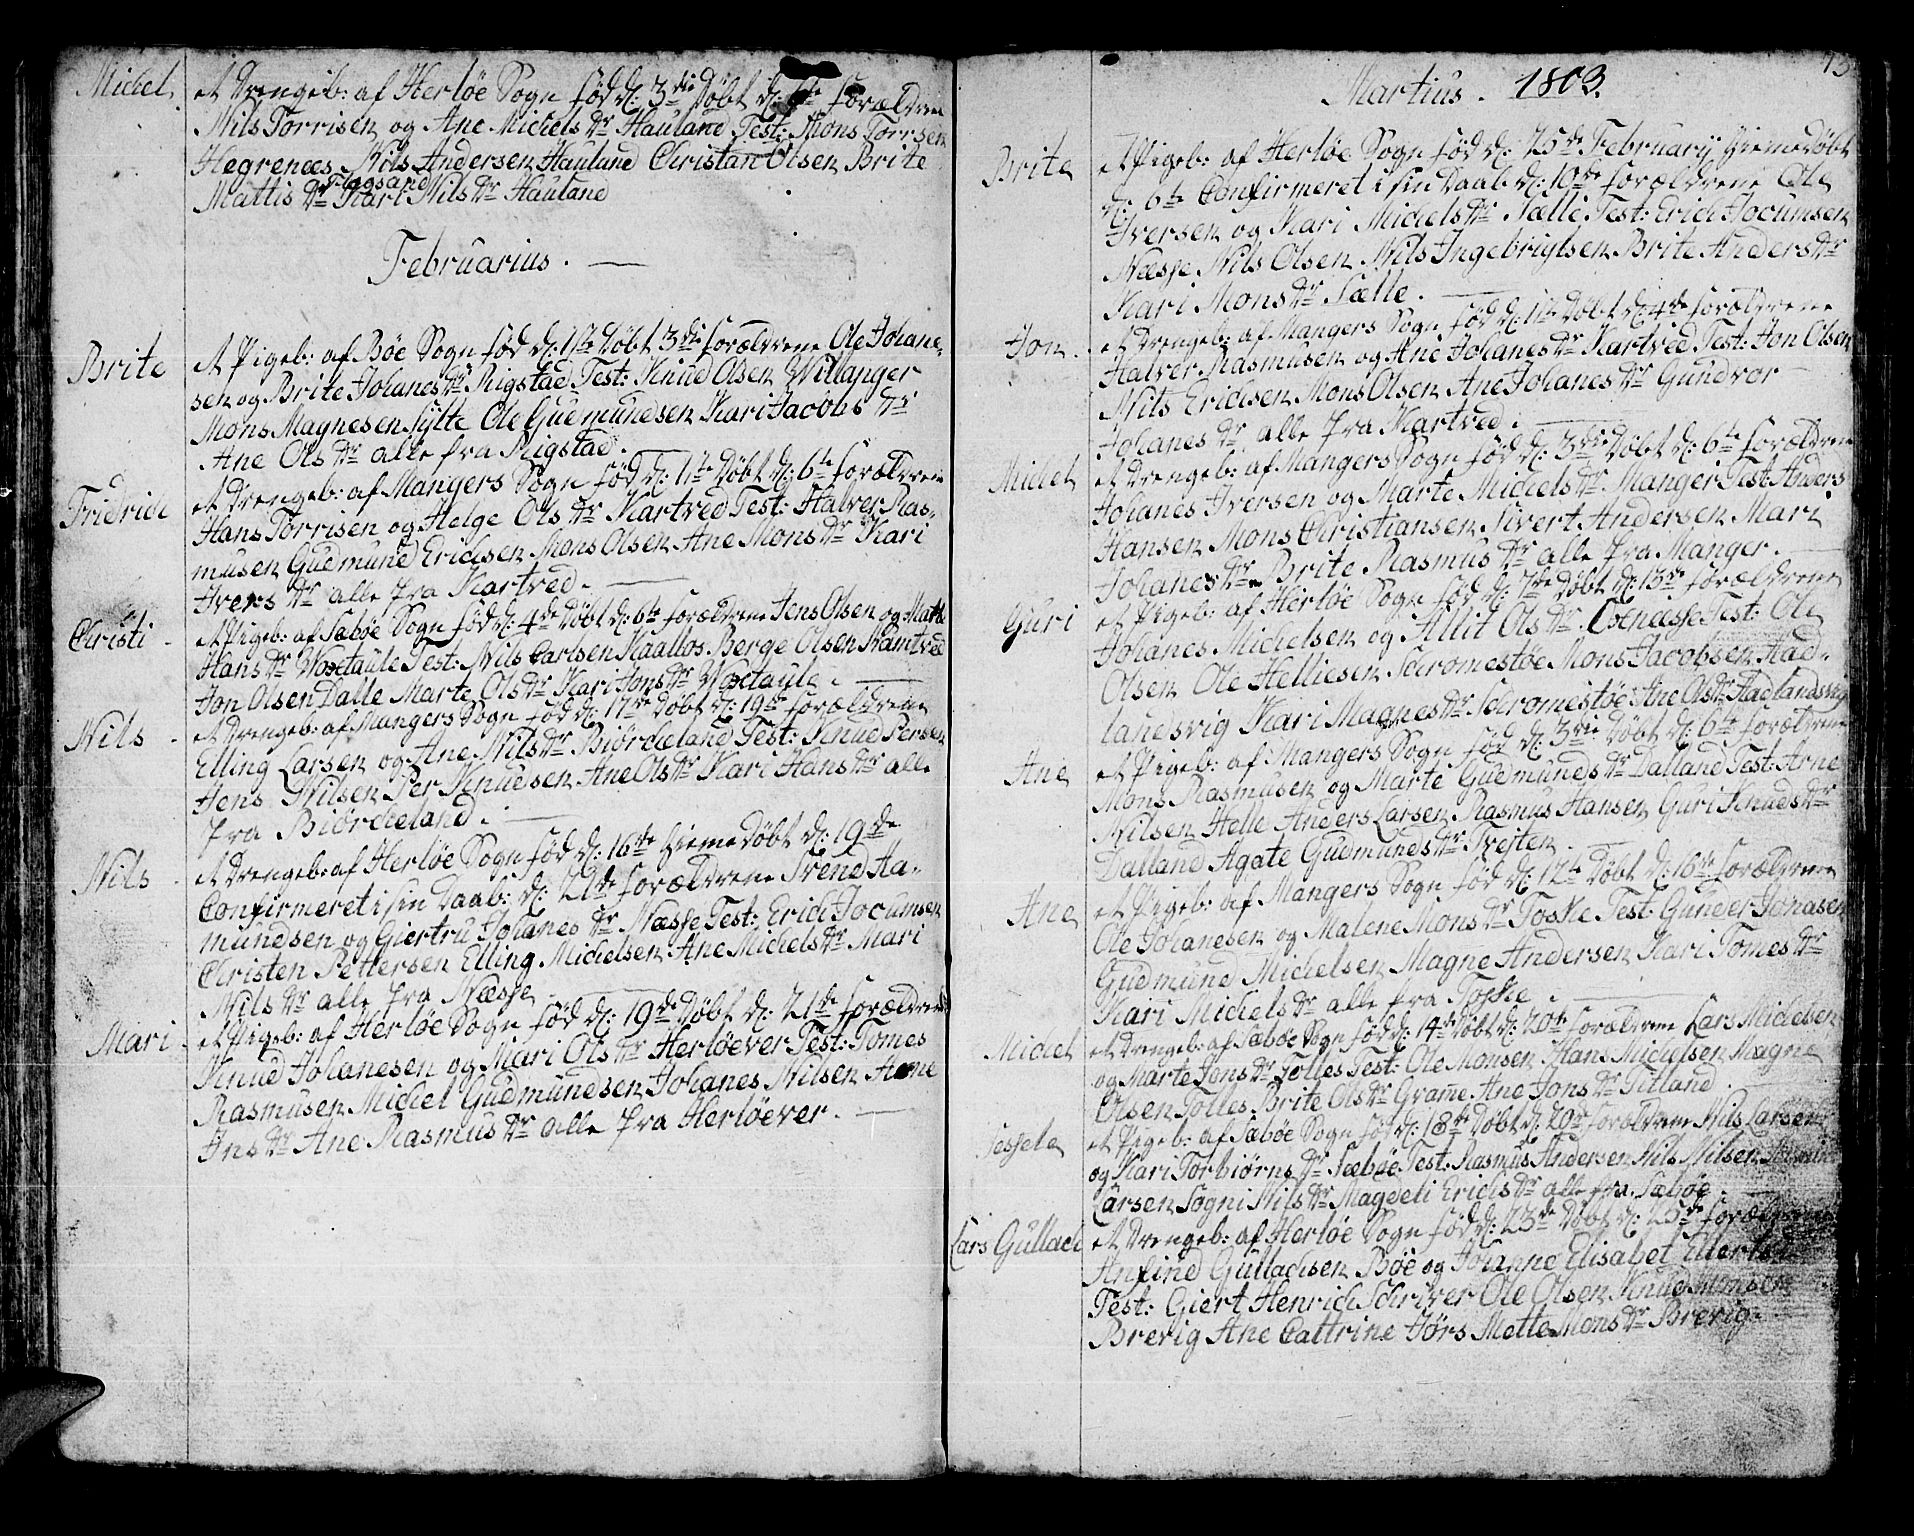 Michel
et Drengeb: af Herløe Sogn fød d: 3die Døbt d: forældrene
Nils Torrisen og Ane Michels Dr Hauland Test: Mons Torrsen
Hegrenæs Nils Andersen Hauland Christan Olsen Brite
Mattis Dr Flogsand Kari Nils Dr Hauland
Februarius.
Brite
et Pigeb: af Bøe Sogn fød d: 1te Døbt 3die forældrene Ole Johane-
sen og Brite Johanes Dr Rigstad Test: Knud Olsen Willanger
Mons Magnesen Sylte Ole Gudmundsen Kari Jacobs Dr
Ane Ols Dr alle fra Rigstad.
Fridrich
et Drengeb: af Mangers Sogn fød d: 1te Døbt d: 6te forældrene
Hans Torrisen og Helge Ols Dr Kartved Test: Halver Ras-
musen Gudmund Erichsen Mons Olsen Ane Mons Dr Kari
Ivers Dr alle fra Kartved.
Christi
et Pigeb: af Sæbøe Sogn fød d: 4de Døbt d: 6te forældrene Jens Olsen og Marte
Hans Dr Woxtaule Test: Nils Carlsen Kaallos Berge Olsen Framtved
Jon Olsen Dalle Marte Ols Dr Kari Jons Dr Woxtaule.
Nils
et Drengeb: af Mangers Sogn fød d: 17de Døbt d: 19de forældrene
Elling Larsen og Ane Nils Dr Biørcheland Test: Knud Persen
Jens Nilsen Per Knudsen Ane Ols Dr Kari Hans Dr alle
fra Biørcheland.
Nils
et Drengeb: af Herløe Sogn fød d: 16te Hiemedøbt d: 19de
Confirmeret i sin Daab: d: 21de forældrene Svend Aa-
mundsen og Giertru Johanes Dr Næsse Test: Erich Jocumsen
Christen Pettersen Elling Michelsen Ane Michels Dr Mari
Nils Dr alle fra Næsse
Mari
et Pigeb: af Herløe Sogn fød d: 19de Døbt d: 21de forældrene
Knud Johanesen og Mari Ols Dr Herløever Test: Tomes
Rasmusen Michel Gudmundsen Johanes Nilsen Anne
Jns Dr Ane Rasmus Dr alle fra Herløever.
Martius. 1803.
Brite
et Pigeb: af Herløe Sogn fød d: 25de February Hiemedøbt
d: 6te Confirmeret i sin Daab d: 10de forældrene Ole
Iversen og Kari Michels Dr Sælle Test: Erich Jocumsen
Næsse Nils Olsen Nils Ingebrigtsen Brite Anders Dr
Kari Mons Dr Sælle.
Jon
et Drengeb: af Mangers Sogn fød d: 1te Døbt d: 4de forældrene
Halver Rasmusen og Ane Johanes Dr Kartved Test: Jon Olsen
Nils Erichsen Mons Olsen Ane Johanes Dr Gundvor
Johanes Dr alle fra Kartved.
Michel
et Drengeb: af Mangers Sogn fød d: 3die Døbt d: 6te forældrene
Johanes Iversen og Marte Michels Dr Manger Test: Anders
Hansen Mons Christiansen Sivert Andersen Mari
Johanes Dr Brite Rasmus Dr alle fra Manger.
Guri
et Pigeb: af Herløe Sogn fød d: 7de Døbt d: 13de forældrene
Johanes Michelsen og Allit Ols Dr Test: Ole
Olsen Ole Helliesen Schromestøe Mons Jacobsen Aad-
landsvig Kari Magnes Dr Schromestøe Ane Ols Dr Aadlandsvig
Ane
et Pigeb: af Mangers Sogn fød d: 3die Døbt d: 6te forældrene
Mons Rasmusen og Marte Gudmunds Dr Dalland Test: Arne
Nilsen Helle Anders Larsen Rasmus Hansen Guri Knuds Dr
Dalland Agate Gudmunds Dr Tveten.
Ane
et Pigeb: af Mangers Sogn fød d: 12te Døbt d: 16de forældrene
Ole Johanesen og Malene Mons Dr Toske Test: Gunder Jonasen
Gudmund Michelsen Magne Andersen Kari Tomes Dr
Kari Michels Dr alle fra Toske.
Michel
et Drengeb: af Sæbøe Sogn fød d: 14de Døbt d: 20de forældrene Lars Michelsen
og Marte Jons Dr Tolles Test: Ole Monsen Hans Michelsen Magne
Olsen Tolles Brite Ols Dr Grame Ane Jons Dr Titland.
Sessela
et Pigeb: af Sæbøe Sogn fød d: 18de Døbt d: 20de forældrene Nils Larsen
og Kari Torbiørns Dr Sæbøe Test: Rasmus Andersen Nils Nilsen
Larsen Sogni Nils Dr Magdeli Erichs Dr alle fra Sæbøe.
Lars Gullach
et Drengeb: af Herløe Sogn fød d: 23de Døbt d: 25de forældrene
Anfind Gullachsen Bøe og Johanne Elisabet
Test: Giert Henrich Schriver Ole Olsen Knud Monsen
Brevig Ane Cattrine Jørs Mette Mons Dr Brevig.